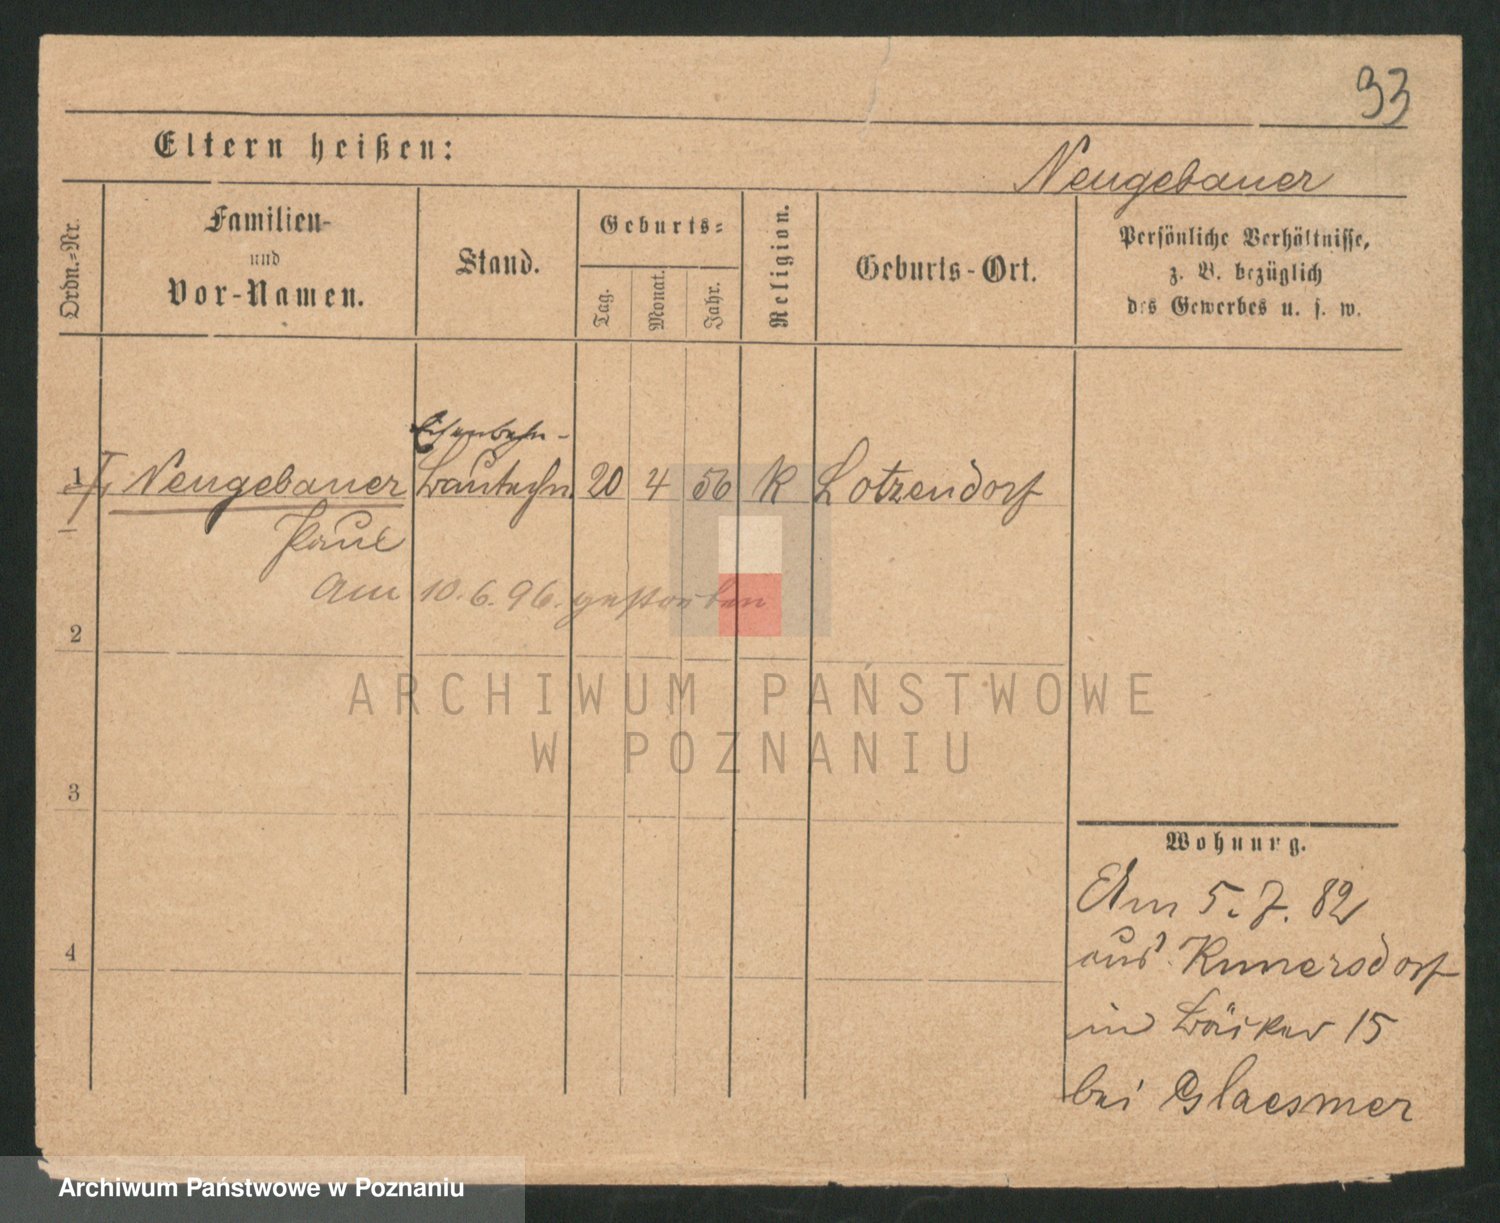 93
Eltern heißen:
Neugebauer
Ordn.-Nr.
Familien-
und
Vor-Namen.
Stand.
Geburts-
Tag.
Monat.
Jahr.
Religion.
Geburts-Ort.
Persönliche Verhältnisse,
z. B. bezüglich
des Gewerbes u. s. w.
Eisenbahn-
1 Neugebauer Bautechn. 20 4 56 K Lotzendorf
Paul
Am 10.6.96. gestorben
2
ARCHIWUM PAŃSTWOWE
W POZNANIU
3
Wohnung.
Am 5. 7. 82
aus Kunersdorf
in Bäcker 15
4
bei Glaesmer
Archiwum Państwowe w Poznaniu